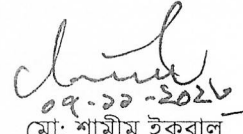 ০৭-১১-২০২৮
মো: শামীম ইকবাল